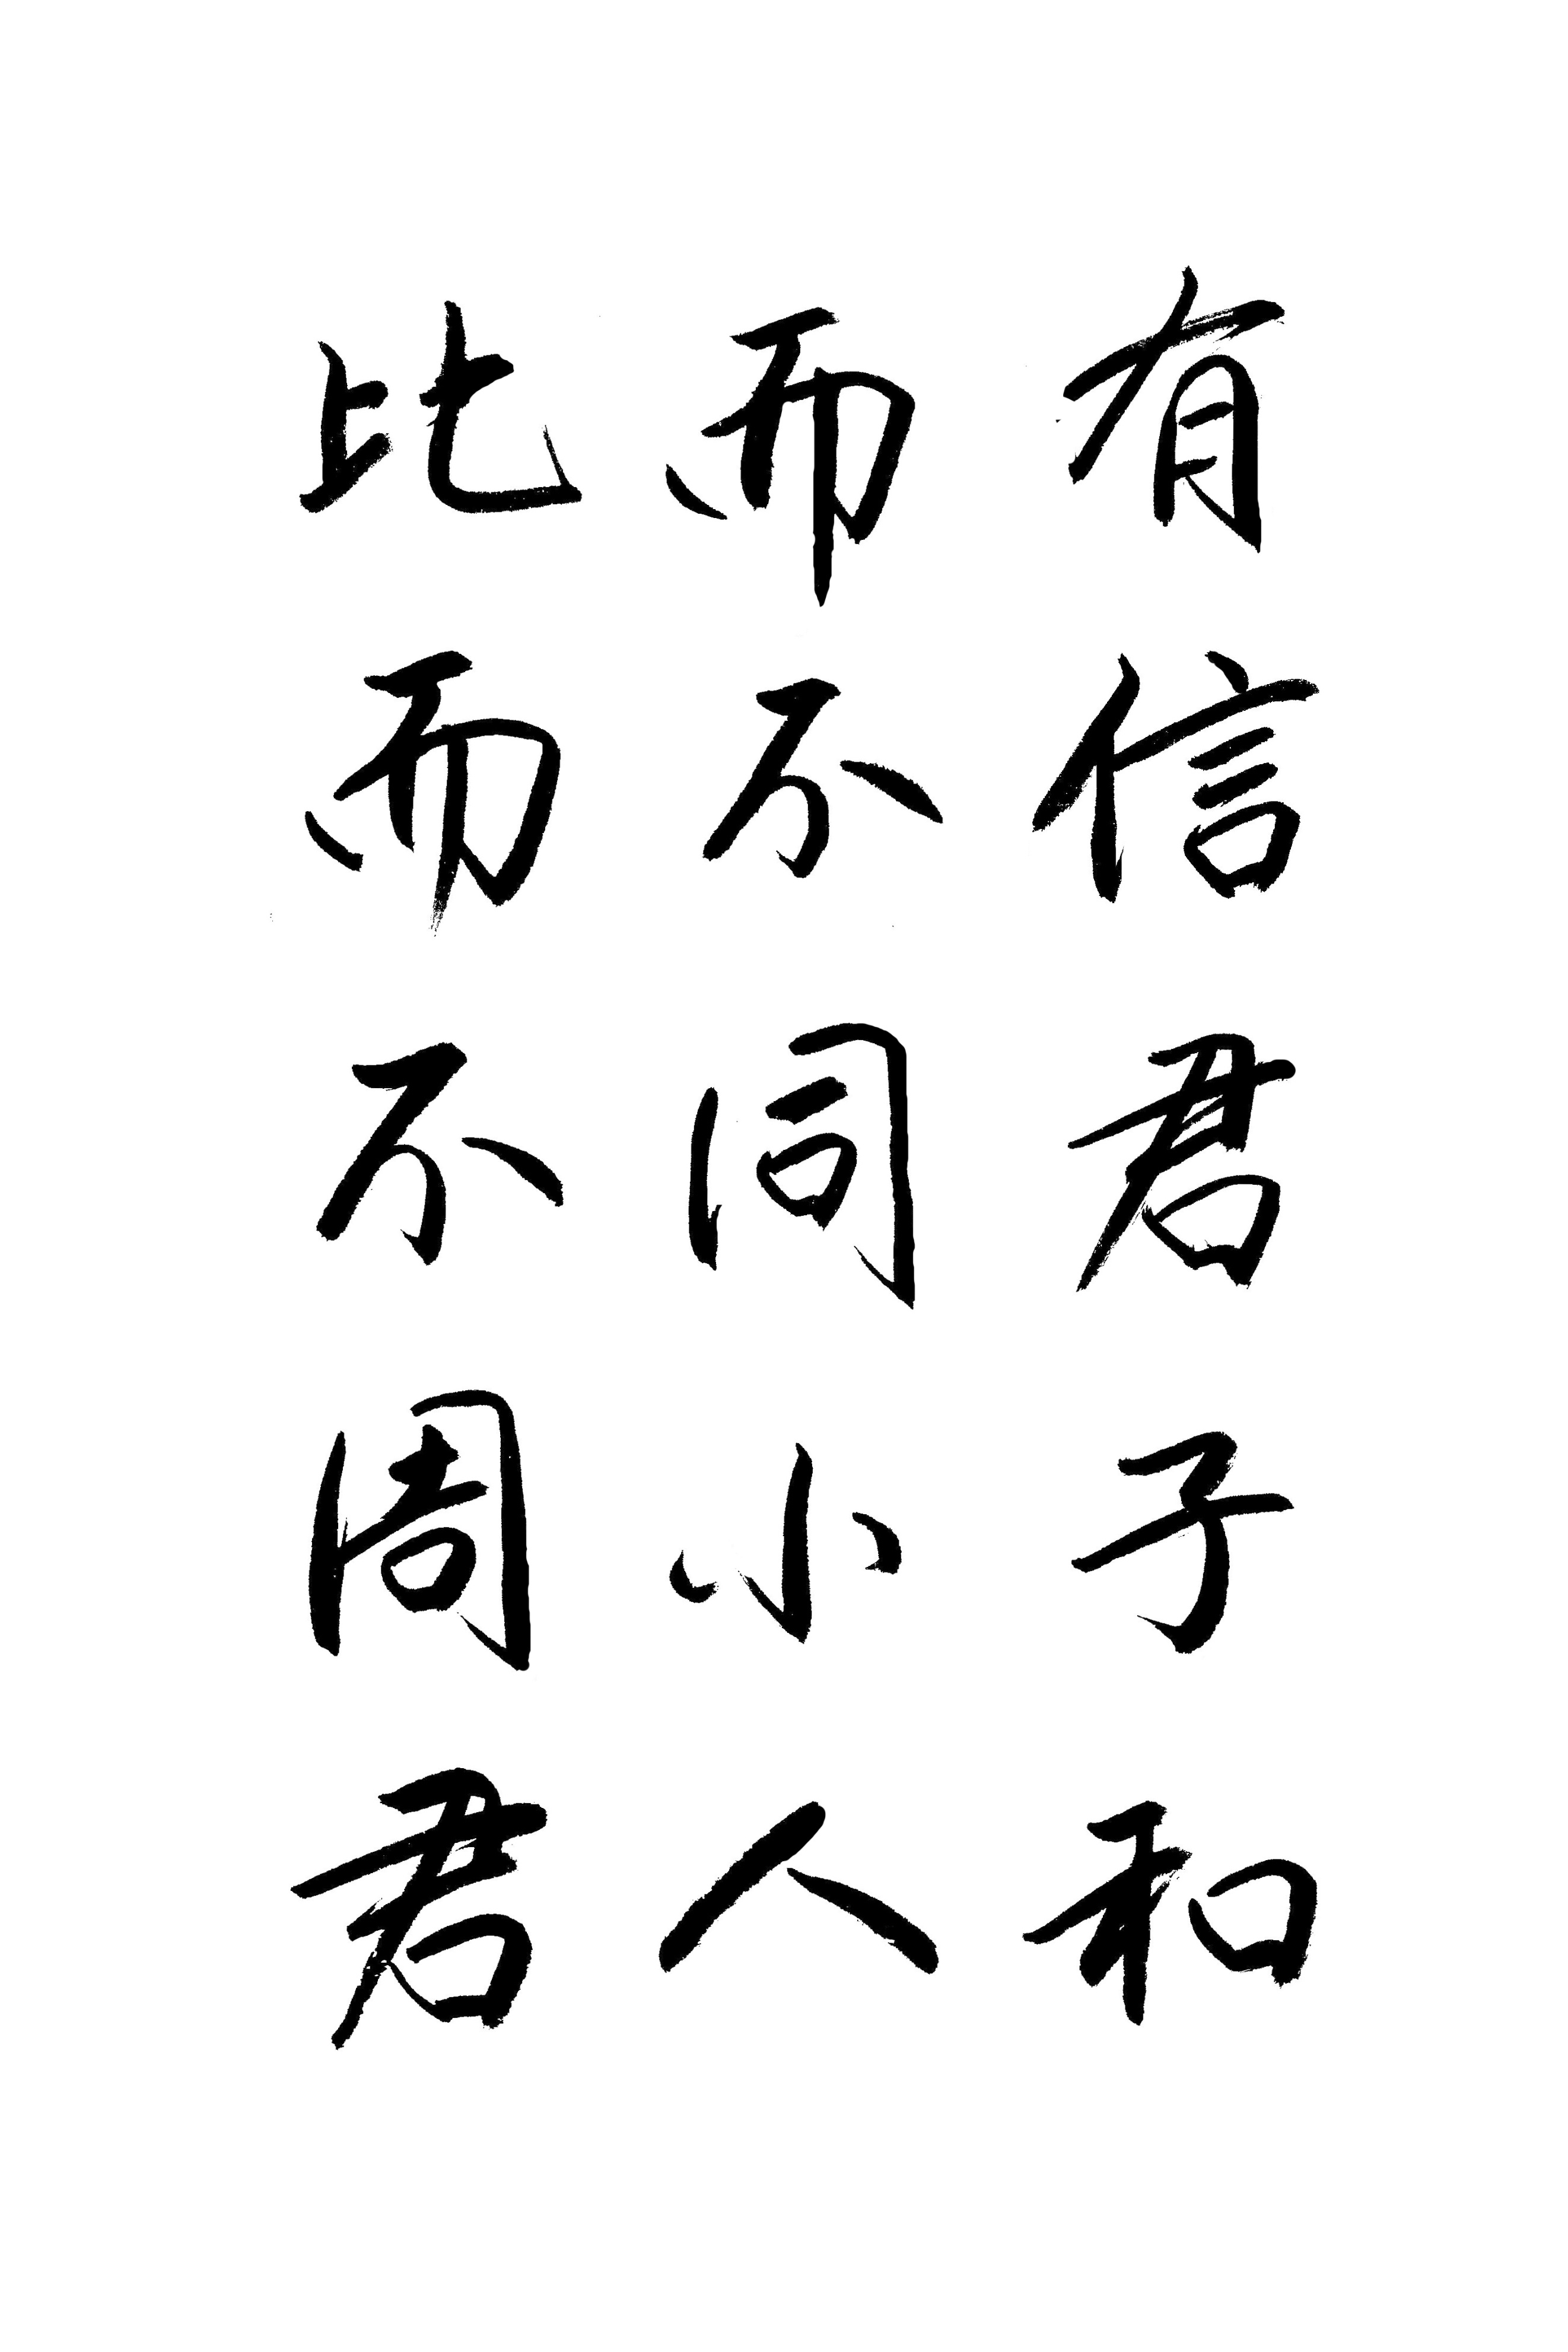 有信君子和
而不同小人
比而不周君